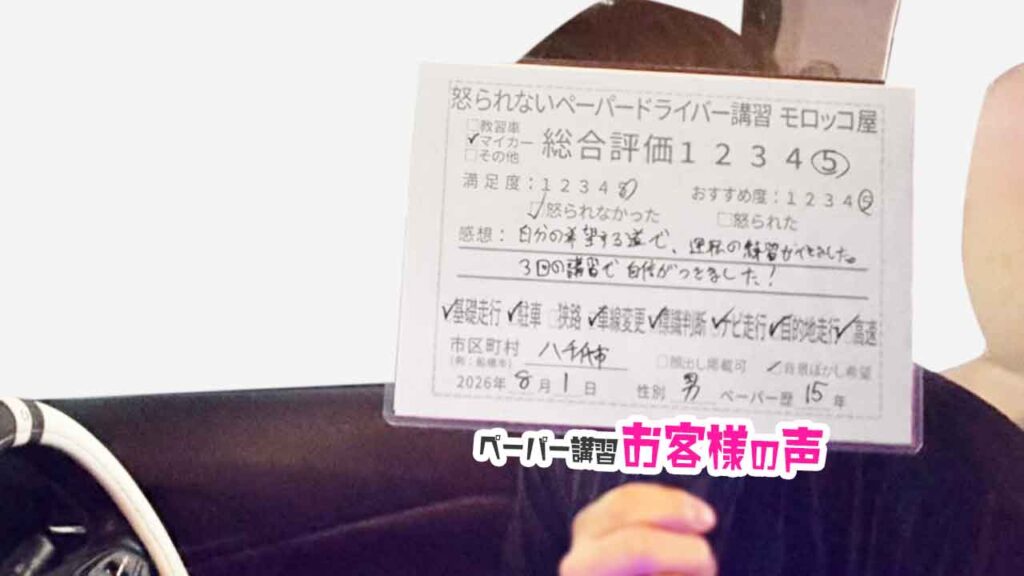 怒られないペーパードライバー講習 モロッコ屋
□教習車
✓マイカー
□その他
総合評価 1 2 3 4 ⑤
満足度：1 2 3 4 ⑤
おすすめ度：1 2 3 4 ⑤
☑怒られなかった □怒られた
感想：自分の希望する道で、運転の練習ができました。
3回の講習で自信がつきました！
✓基礎走行 ✓駐車 □狭路 ✓車線変更 ✓標識判断 ✓ナビ走行 ✓目的地走行 ✓高速
市区町村 八千代市
(例：船橋市)
□顔出し掲載可 ✓背景ぼかし希望
2026年8月1日 性別 男 ペーパー歴 15年
ペーパー講習 お客様の声